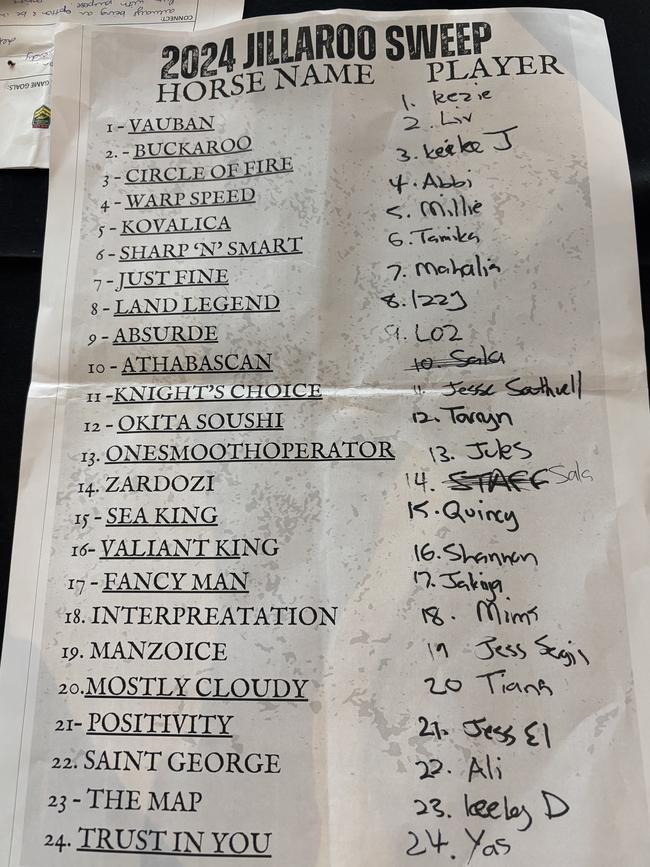 CONNECT:
GAME GOALS:
2024 JILLAROO SWEEP
HORSE NAME PLAYER
1 - VAUBAN 1. Kezie
2. - BUCKAROO 2. Liv
3 - CIRCLE OF FIRE 3. Keeke J
4 - WARP SPEED 4. Abbi
5 - KOVALICA 5. Millie
6 - SHARP ‘N’ SMART 6. Tamika
7 - JUST FINE 7. Mahalia
8 - LAND LEGEND 8. Izzy
9 - ABSURDE 9. LOZ
10 - ATHABASCAN 10. Sala
11 -KNIGHT'S CHOICE 11. Jesse Southwell
12 - OKITA SOUSHI 12. Taryn
13. ONESMOOTHOPERATOR 13. Jules
14. ZARDOZI 14. STAFF Sala
15 - SEA KING 15. Quincy
16- VALIANT KING 16. Shannon
17 - FANCY MAN 17. Jakiya
18. INTERPREATATION 18. Mims
19. MANZOICE 19 Jess Sergis
20.MOSTLY CLOUDY 20 Tiana
21- POSITIVITY 21. Jess El
22. SAINT GEORGE 22. Ali
23 - THE MAP 23. Keeley D
24. TRUST IN YOU 24. Yas